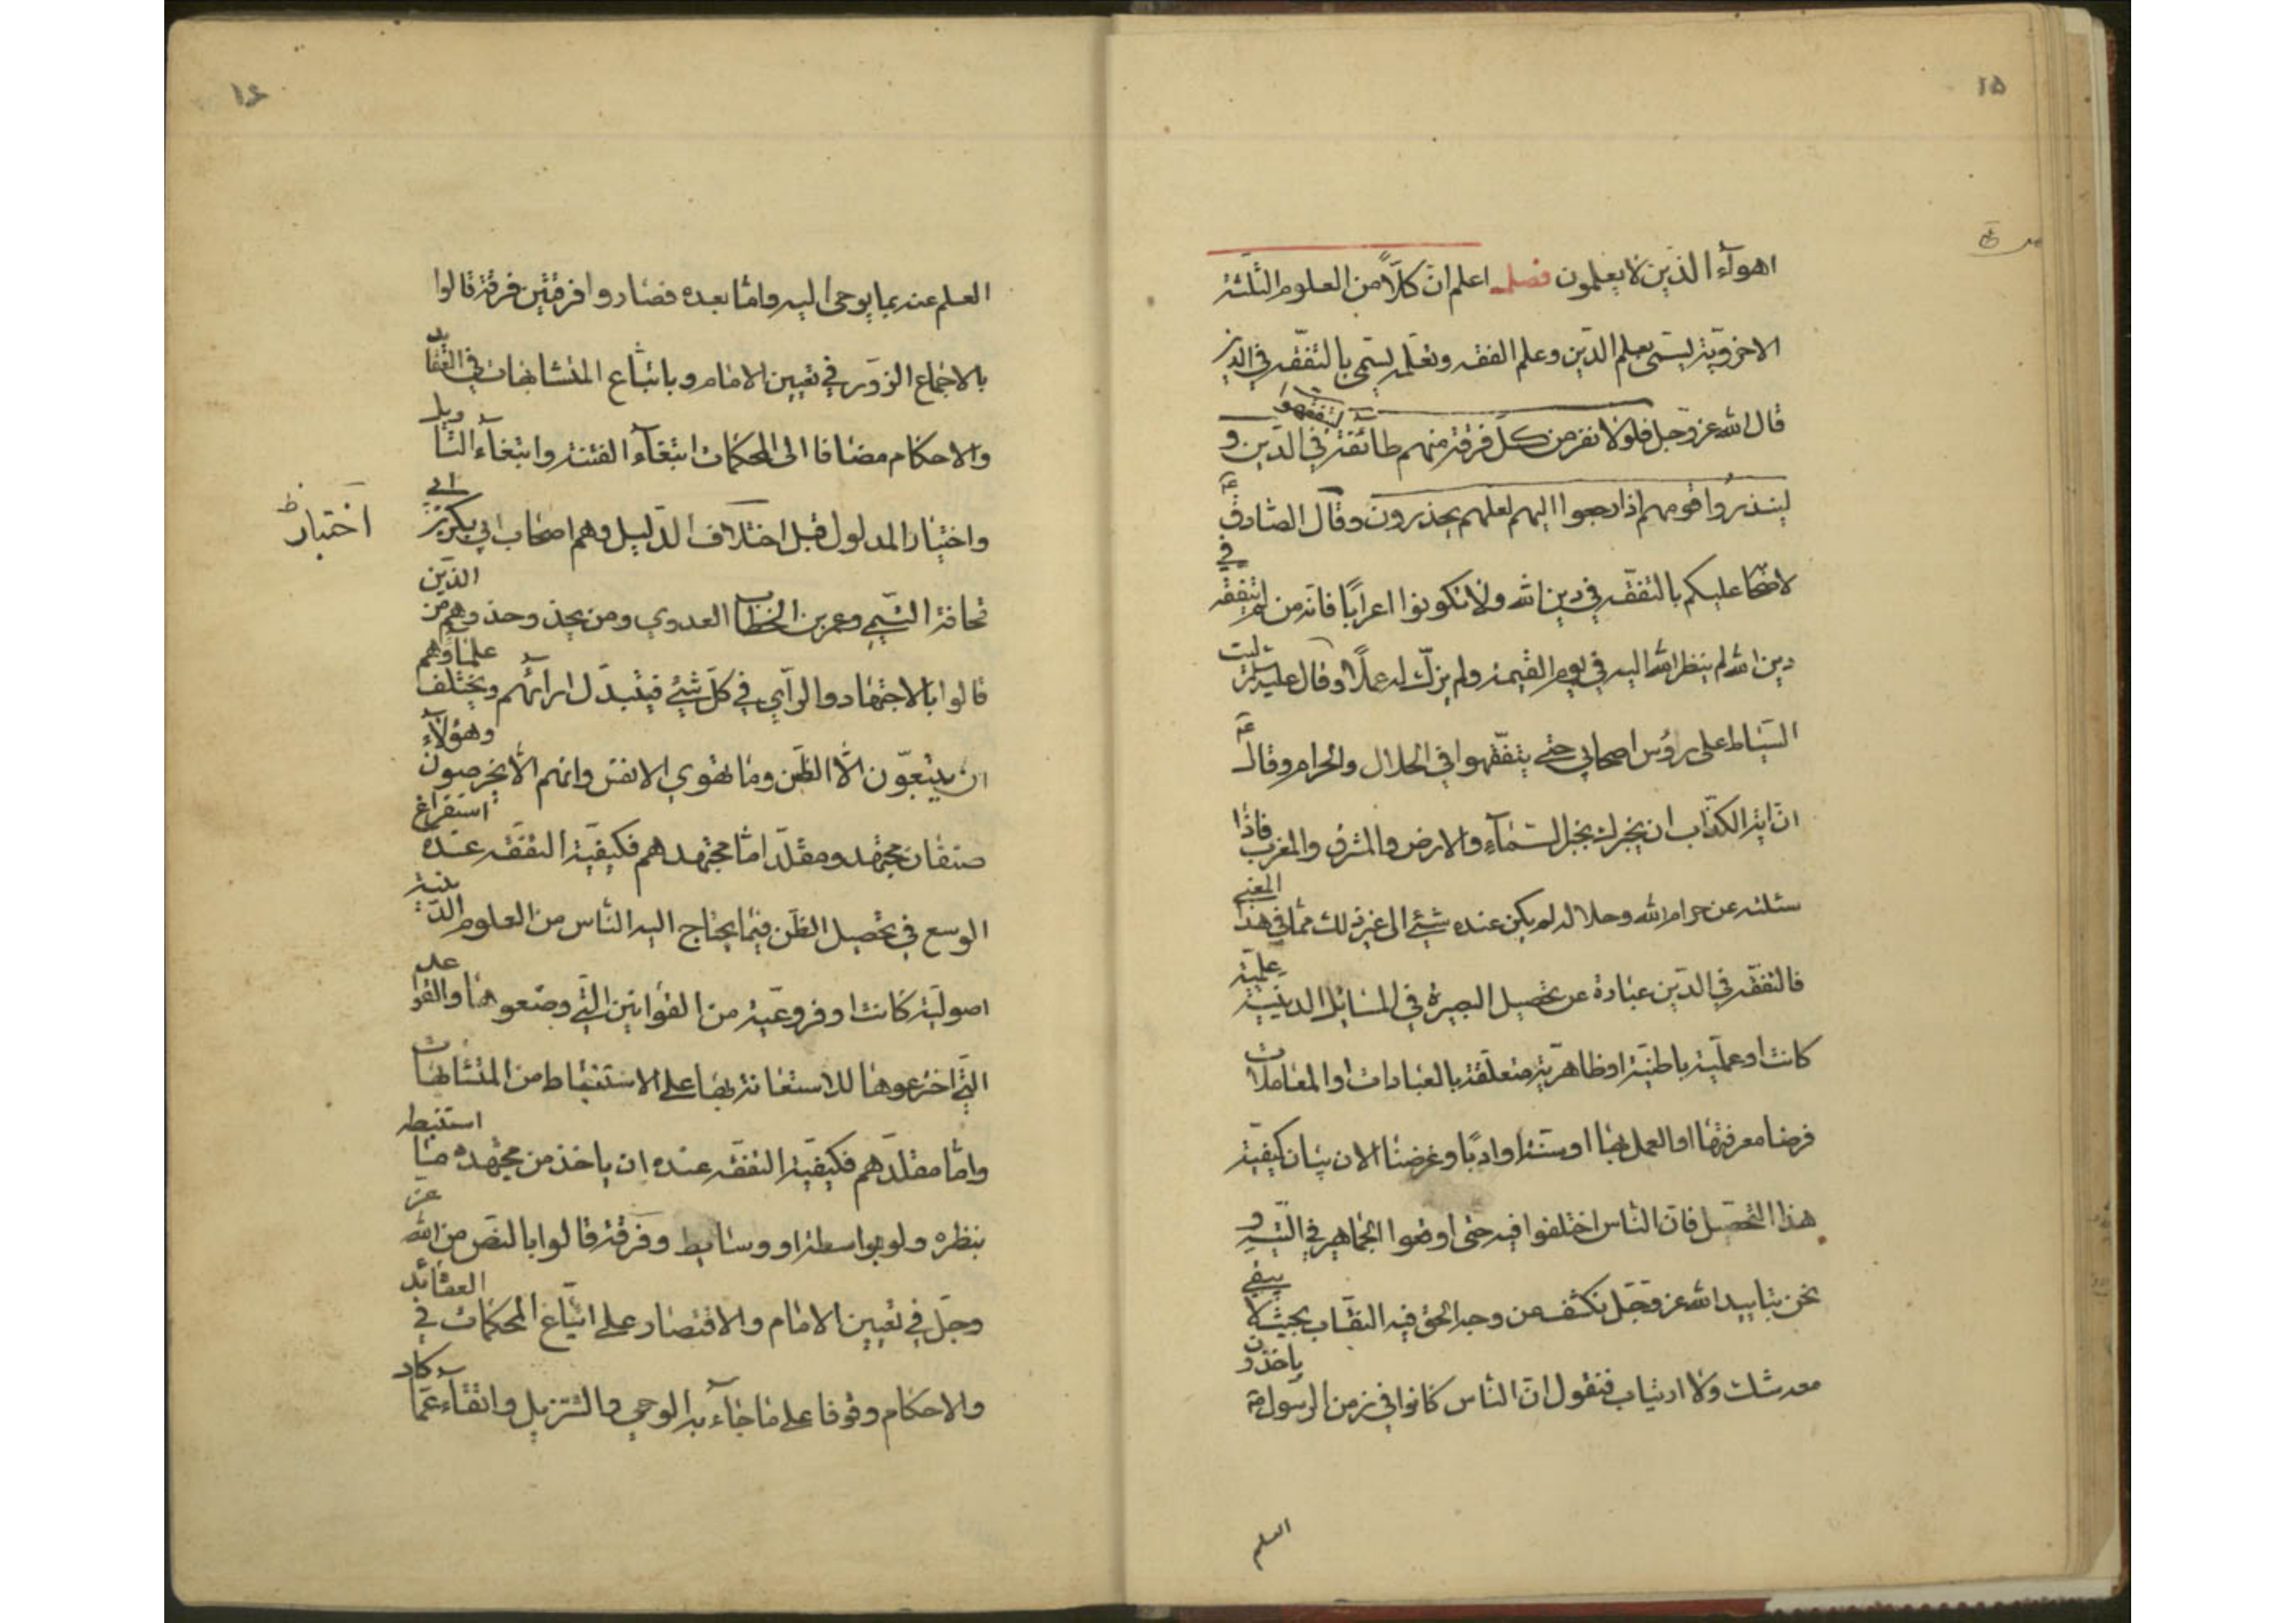 ١۵
اهوآء الذين لا يعلمون فصل اعلم ان كلاًّ من العلوم الثلثة
الاخروية يسمى بعلم الدين وعلم الفقه وتعلمه يسمى بالتفقه في الدين
قال الله عز وجل فلولا نفر من كل فرقة منهم طائفة ليتفقهوا في الدين و
لينذروا قومهم اذا رجعوا اليهم لعلهم يحذرون وقال الصادق ع
لاصحابه عليكم بالتفقه في دين الله ولا تكونوا اعرابًا فانه من لم يتفقه في
دين الله لم ينظر الله اليه في يوم القيمة ولم يزك له عملًا وقال عليه السلم ليت
السياط على رؤس اصحابي حتى يتفقهوا في الحلال والحرام وقال ع
ان اية الكذاب ان يخبرك بخبر السمآء والارض والمشرق والمغرب فاذا
سئلته عن حرام الله وحلاله لم يكن عنده شيئ الى غير ذلك مما في هذا المعنى
فالتفقه في الدين عبارة عن تحصيل البصيرة في المسائل الدينية علمية
كانت او عملية باطنية او ظاهرية متعلقة بالعبادات او المعاملات
فرضا معرفتها او العمل بها او سنة او ادبًا وغرضنا الان بيان كيفية
هذا التحصيل فان الناس اختلفوا فيه حتى اوقعوا الجماهير في التيه و
نحن بتاييد الله عز وجل نكشف عن وجه الحق فيه النقاب بحيث لا يبقى
معه شك ولا ارتياب فنقول ان الناس كانوا في زمن الرسول ص ياخذون
العلم
١٦
العلم عنه بما يوحى اليه واما بعده فصاروا فرقتين فرقة قالوا
بالاجماع المزور في تعيين الامام وباتباع المتشابهات في العقائد
والاحكام مضافا الى المحكمات ابتغآء الفتنة وابتغآء التاويل
واختيار المدلول قبل اختلاف الدليل وهم اصحاب ابي بكر بن ابي
اختبار ظ
قحافة التيمي وعمر بن الخطاب العدوي ومن يحذ وحذوهم من الذين
قالوا بالاجتهاد والرأي في كل شيئ فيتبدل ارائهم ويختلف علماؤهم
ان يتبعون الا الظن وما تهوي الانفس وانهم الا يخرصون وهؤلآء
صنفان مجتهد ومقلد اما مجتهدهم فكيفية التفقه عنده استفراغ
الوسع في تحصيل الظن فيما يحتاج اليه الناس من العلوم الدينية
اصولية كانت او فروعية من القوانين التي وضعوها والقواعد
التي اخترعوها للاستعانة بها على الاستنباط من المتشابهات
واما مقلدهم فكيفية التفقه عنده ان ياخذ من مجتهده ما استنبطه
بنظره ولو بواسطة او وسايط وفرقة قالوا بالنص من الله عز
وجل في تعيين الامام والاقتصار على اتباع المحكمات في العقائد
والاحكام وقوفا على ما جآء به الوحي والتنزيل واتقآء عما كاد